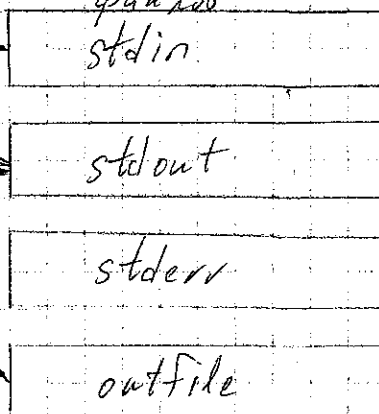 stdin
stdout
stderr
outfile